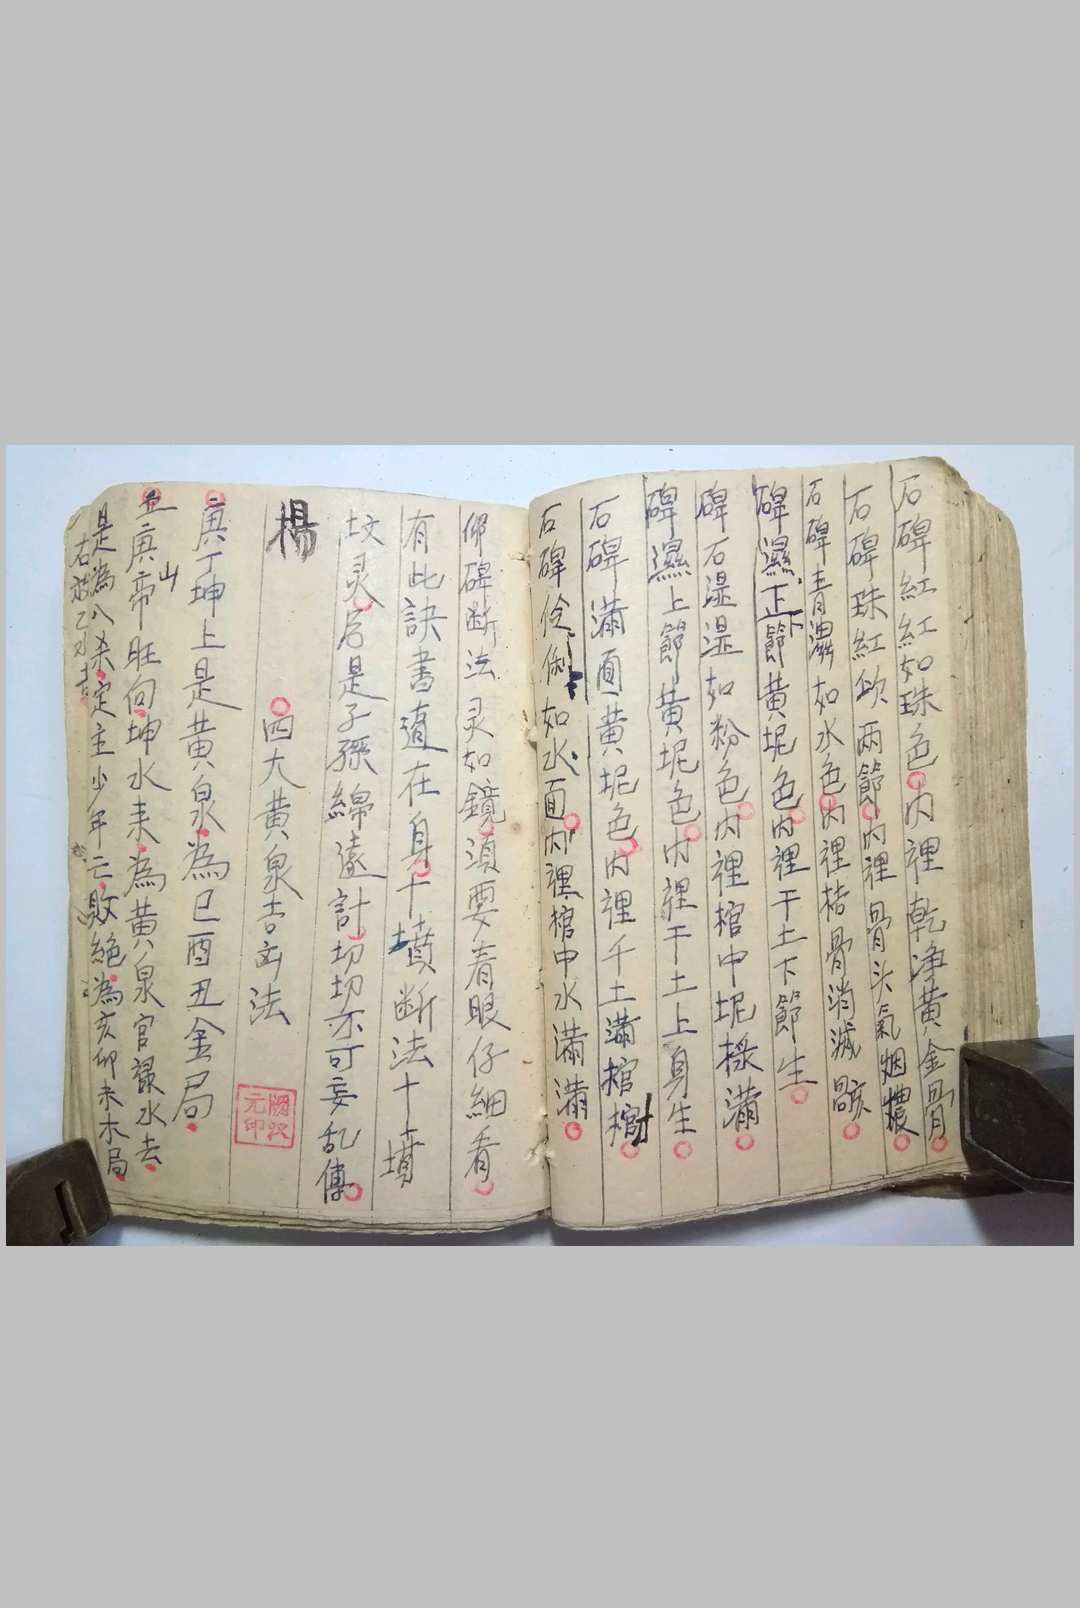 石碑紅紅如珠色內裡乾净黃金骨
石碑珠紅欤兩節內裡骨头氣烟
石碑青濕如水色內裡桔骨消滅
碑濕正下節黃坭色內裡干土下節生
碑石湿湿如粉色內裡棺中坭滿
碑濕上節黃坭色內裡干土上身生
石碑滿面黃坭色內裡千土滿棺
石碑伶俐如水面內裡棺中水滿滿
仰碑断法灵如鏡須要着眼仔細看
有此訣書遺在身十墳断法十墳
坟灵后是子孫綿遠計切切不可妄乱傳
楊
四大黄泉吉凶法
元印
庚丁坤上是黄泉為巳酉丑金局
丑庚山帝旺向坤水耒為黄泉官禄水去
是為八杀定主少年亡敗絕為亥卯未木局
右